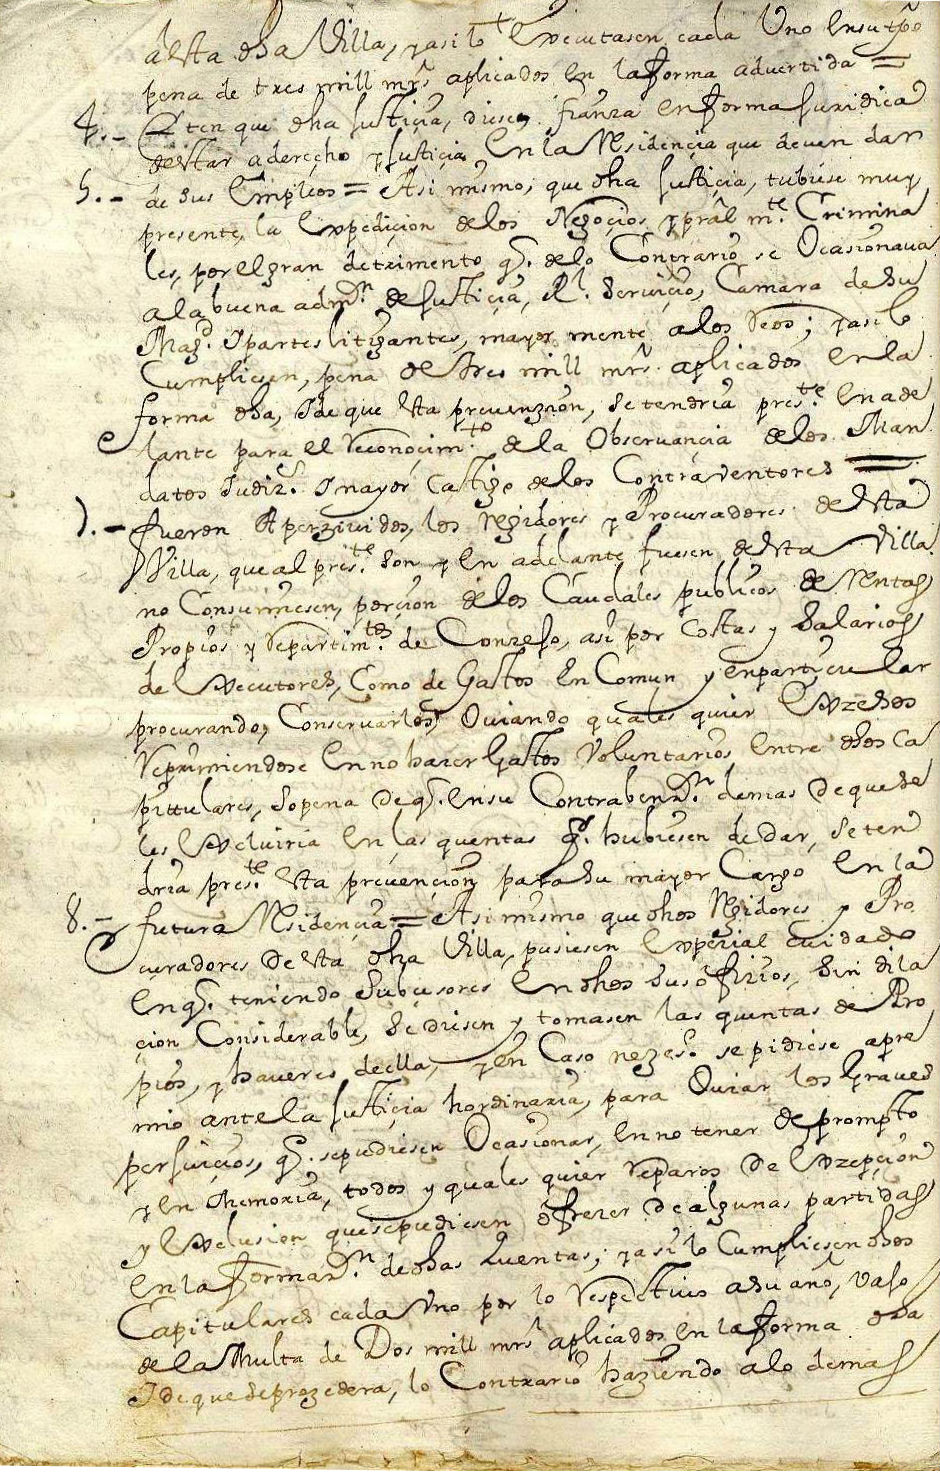 desta dha Villa, y asi lo executasen cada Uno en su tpo
pena de tres mill mrs aplicados en la forma advertida =
4.- Yten que dha Justicia, diesen fianza en forma Juridica
de estar a derecho y Justicia en la Residençia que deven dar
5.- de sus Empleos = Asi mismo, que dha Justiçia, tubiese muy
presente, la Expediçion de los Negoçios, y pral mte. Crimina
les, por el gran detrimento q. de lo Contrario se Ocasionava
a la buena admon de Justiçia, Rl. Serviçio, Camara de Su
Magd. Y partes litigantes, mayor mente a los Reos; y asi lo
Cumpliesen, pena de tres mill mrs. aplicados en la
forma dha, Y de que esta prevenzion, se tendria preste. en ade
lante para el Reconoçimto de la Observançia de los Man
datos Judiz. Y mayor Castigo de los Contraventores =
7.- fueron Aperzividos, los Regidores y Procuradores de esta
Villa, que al preste. son y en adelante fuesen de esta Villa
no Consumiesen, porçion de los Caudales publicos de Rentas
Propios y Repartimtos de Conzejo, asi por Costas y Salarios
de Executores, Como de Gastos en Comun y en particular
procurando, Conservarlos, Oviando quales quier Exzesos
Reprimiendose en no hazer Gastos Voluntarios entre dhos Ca
pittulares, so pena de q. en su Contrabenzn. demas de que se
les Excluiria en las quentas q. hubiesen de dar, se ten
dria preste. esta prevençion para su mayor Cargo en la
8.- futura Residençia = Asi mismo que dhos Regidores y Pro
curadores de esta dha Villa, pusiesen expezial cuidado
en q. teniendo Subcesores en dhos sus ofizios, sin dila
çion Considerable, se diesen y tomasen las quentas de Pro
pios, y haveres de ella, y en Caso nezes. se pidiese apre
mio ante la Justiçia hordinaria, para Oviar los Graves
perjuiçios, q. se pudiesen Ocasionar, en no tener de prompto
y en Memoria, todos y quales quier Reparos de Exzepçion
y Exclusion que se pudiesen ofrezer de algunas partidas
en la formazn. de dhas Quentas; y asi lo Cumpliesen dhos
Capitulares cada Uno por lo Respectivo a su año, vajo
de la Multa de Dos mill mrs aplicados en la forma dha
Y de que se prozedera, lo Contrario haziendo a lo demas